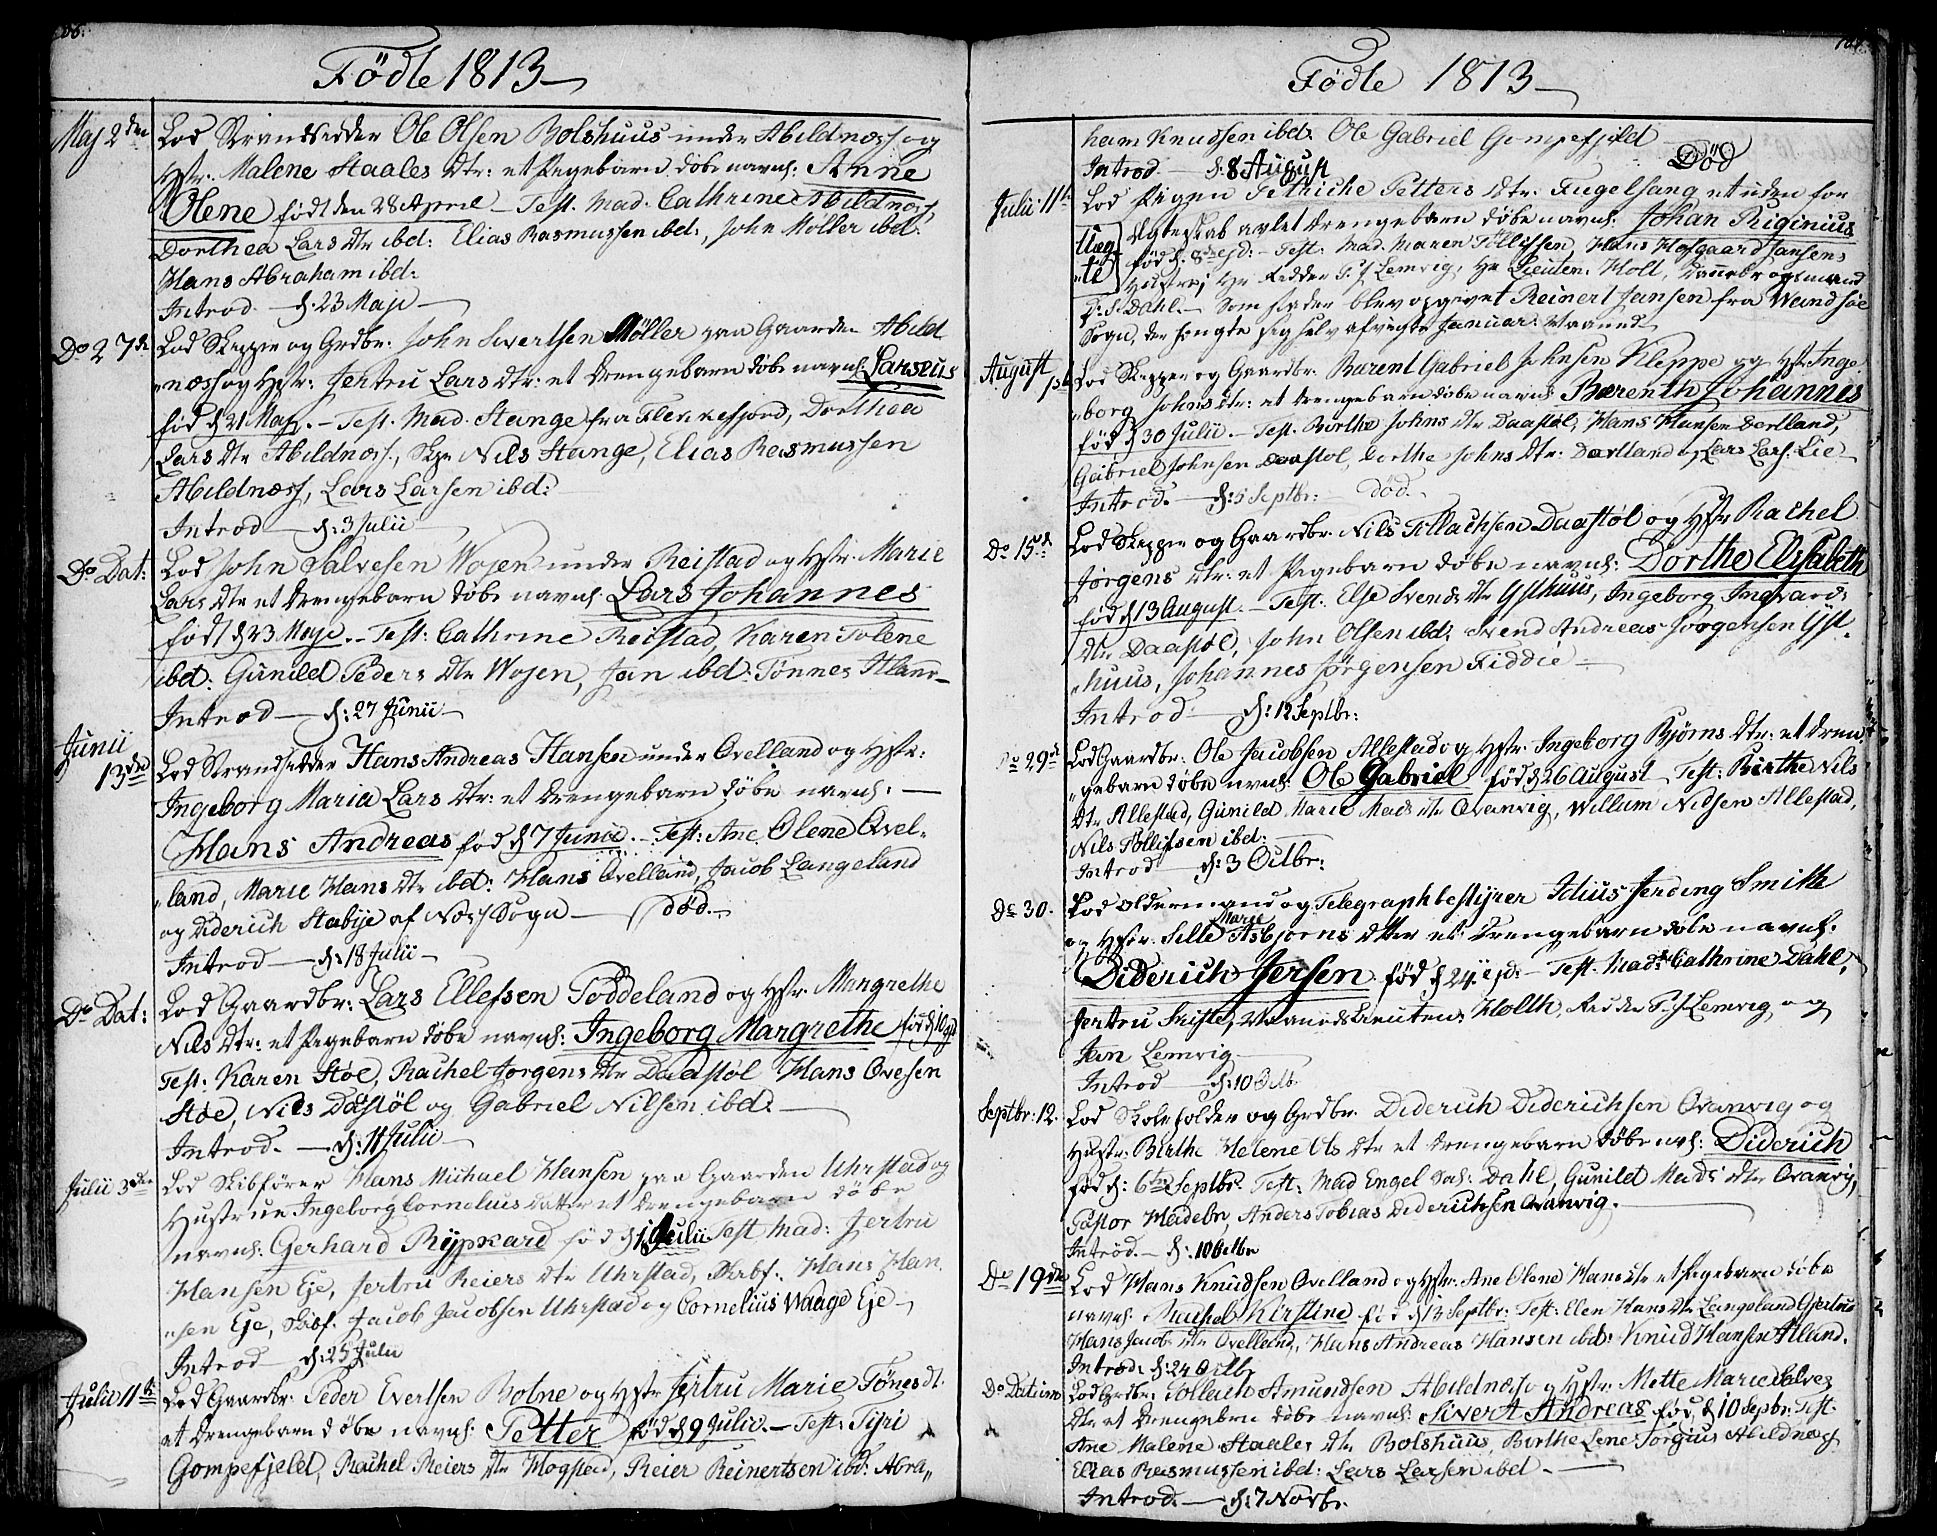 Födte 1813
Maj 2den Lod Strandsidder Ole Olsen Bolshuus under Abildnæss og
Hstr. Malene Staales Dtr: et Pigebarn døbe navnl: Anne
Olene født den 28 April – Test. Mad. Cathrine Abildnæss,
Dorthea Lars Dtr ibd: Elias Rasmussen ibd:, John Møller ibd:
Hans Abraham ibd:
Introd. – d. 23 Maji –
Do 27de Lod Skipper og Grdbr. John Sivertsen Møller paa Gaarden Abild
næss og Hstr: Jertru Lars Dtr: et Drengebarn døbe navnl: Larseus
fød d 21 Maj. – Test. Mad. Stange fra Flekkefjord, Dorthea
Lars Dtr Abildnæss., Skpr Nils Stange, Elias Rasmussen
Abildnæss, Lars Larsen ibd:
Introd – d: 3 Julii –
Do Dat: Lod John Salvesen Wosen under Reistad og Hstr. Marie
Lars Dtr et Drengebarn døbe navnl: Lars Johannes
født d 23 Maji. – Test: Cathrine Reistad, Karen Tolene
ibd: Gunild Peders Dtr Wosen, Jan ibd: Tønnes
Introd – d: 27 Junii –
Junii 13de Lod Strandsidder Hans Andreas Hansen under Ovelland og Hstr:
Ingeborg Maria Lars Dtr: et Drengebarn døbe navnl: –
Hans Andreas fød d 7 Junii. – Test: Ane Olene Ovel-
land, Marie Hans Dtr ibd: Hans Ovelland, Jacob Langeland
og Diderich Stabye af Næss Sogn – død. –
Introd – d: 18 Julii –
Do Dat: Lod Gaardbr: Lars Ellefsen Toddeland og Hstr. Margrethe
Nils Dtr: et Pigebarn døbe navnl: Ingeborg Margrethe fød d 10
Test. Karen Støe, Rachel Jørgens Dtr Daastøl Hans Ovesen
Støe, Nils Dastøl og Gabriel Nilsen ibd: –
Introd. – d: 11 Julii –
Julii 3de Lod Skibfører Hans Michael Hansen paa Gaarden Uhrstad og
Hustrue Ingeborg Cornelius Datter et Drengebarn døbe
navnl: Gerhard Rypkard fød d 1 Julii Test Mad: Jertru
Hansen Eje, Jertru Reiers Dtr Uhrstad, Skbf: Hans Han
sen Eje, Skbf. Jacob Jacobsen Uhrstad og Cornelius Waage Eje –
Introd – d: 25 Julii
Julii 11te Lod Gaardbr: Peder Evertsen Botne og Hstr Jertru Marie Tønes dt.
et Drengebarn døbe navnl: Petter fød d 9 Julii. – Test: Tiri
Gompefjeld, Rachel Reiers Dtr Mogstad, Reier Reinertsen ibd: Abra
Födte 1813
ham Knudsen ibd. Ole Gabriel Gompefjeld
Introd – d: 8 August Död
Julii 11te Lod Pigen Petriche Petters Dtr: Fugelsang et uden for
Uæg te Egteskab avlet Drengebarn døbe navnl. Johan Riginius
fød d. 8de ejd: – Test: Mad. Maren Tollifsen, Hans Hofgaard Jansens
Hustru, Hr Ridder P: J Lemvig, Hr Lieuten: Holt, Dannebrogsmand
P: S Dahl. – Som fader blev opgivet Reinert Jansen fra Wandsøe
Sogn, der hengte sig selv afvigte Januar: Maaned
August 1ste Lod Skipper og Gaardbr. Barent Gabriel Johnsen Kleppe og Hstr Inge
borg Johns Dtr: et Drengebarn døbe navnl Barenth Johannes
fød d 30 Julii. – Test. Birthe Johns Dtr Daastøl, Hans Hansen Dertland,
Gabriel Johnsen Daastøl, Dorthe Johns Dtr: Dærtland og Lars Lars: Lie
Introd. – d: 5 Septbr: – død.
Do 15d Lod Skipper og Gaardbr. Nils Tollachsen Daastøl og Hstr Rachel
Jørgens Dtr: et Pigebarn døbe navnl: Dorthe Elisabeth
fød d 13 August. – Test. Else Svends Dtr Ysthuus, Ingeborg Ingvards
Dtr Daastøl, John Olsen ibd, Svend Andreas Jørgensen Yst
huus, Johannes Jørgensen Fiddie –
Introd – d: 12 Septbr:
Do 29d Lod Gaardbr: Ole Jacobsen Allestad og Hstr. Ingeborg Bjørns Dtr: et Dren
gebarn døbe nvnl: Ole Gabriel fød d 26 August – Test: Birthe Nils
Dtr Allestad, Gunild Marie Mads Dtr Qvanvig, Willum Nilsen Allestad,
Nils Tollifsen ibd:
Introd – d: 3 Octbr:
Do 30. Lod oldermand og Telegraphbestyrer Idius Jerding Smith
og Hstr. Sille Marie Asbjørns Dtter et Drengebarn døbe navnl:
Diderich Jersen fød d 24 ejd: – Test. Mad: Cathrine Dahl,
Jertru Svifte, Maanedslieuten: Holth, Ridder P. J Lemvig og
Jan Lemvig
Introd – d: 10 Octb
Septbr: 12. Lod Skoleholder og Grdbr. Diderich Diderichsen Qvanvig og
Hustr: Birthe Helene Ols Dtr et Drengebarn døbe nvl: Diderich
fød d: 6te Septbr. Test: Mad Engel Dahl, Gunild Mads Dtr Qvanvig,
Pastor Heideln, Anders Tobias Diderichsen Qvanvig.
Introd. – d: 10 Octbr
Do 19de Lod Hans Knudsen Ovelland og Hstr: Ane Olene Hans Dtr et Pigebarn døbe
navnl: Rachel Kirstine fød d 13 Septbr: Test: Elen Hans Dtr Langeland, Gjertrud
Hans Jacobs Dtr Ovelland, Hans Andreas Hansen ibd: Knud Hansen
Introd: d: 24 Octb
Do Datum Lod Grdbr: Tollach Amundsen Abildnæss og Hstr: Mette Marie Salves
Dtr et Drengebrn døbe navnl: Sivert Andreas fød d 10 Septbr: Test.
Ane Malene Staales Dtr Bolshuus, Birthe Lene Torgius Abildnæss
Elias Rasmussen ibd: Lars Larsen ibd –
Introd. – d: 7 Novbr.